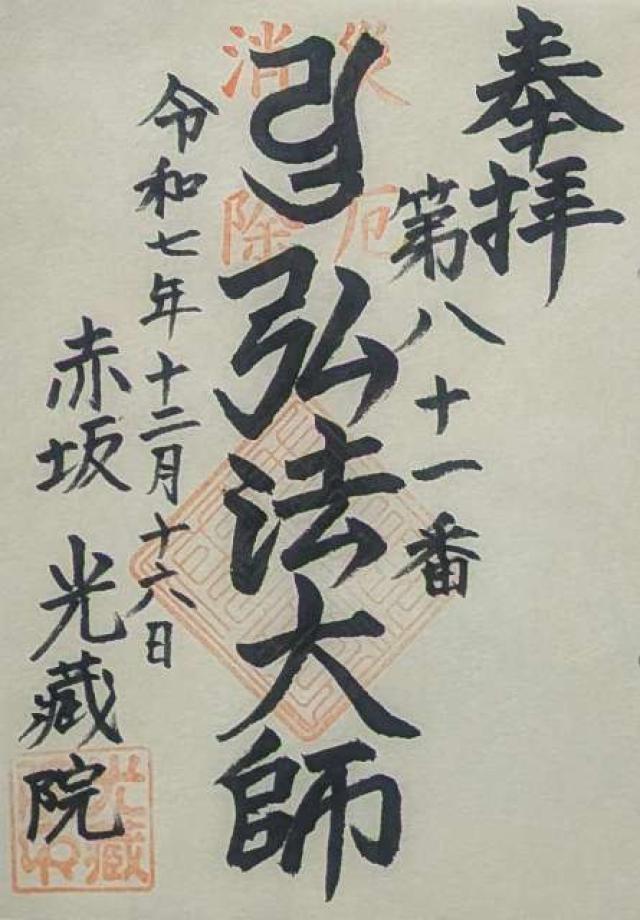 奉拝
第八十一番
災厄
消除
弘法大師
令和七年十二月十六日
赤坂 光蔵院